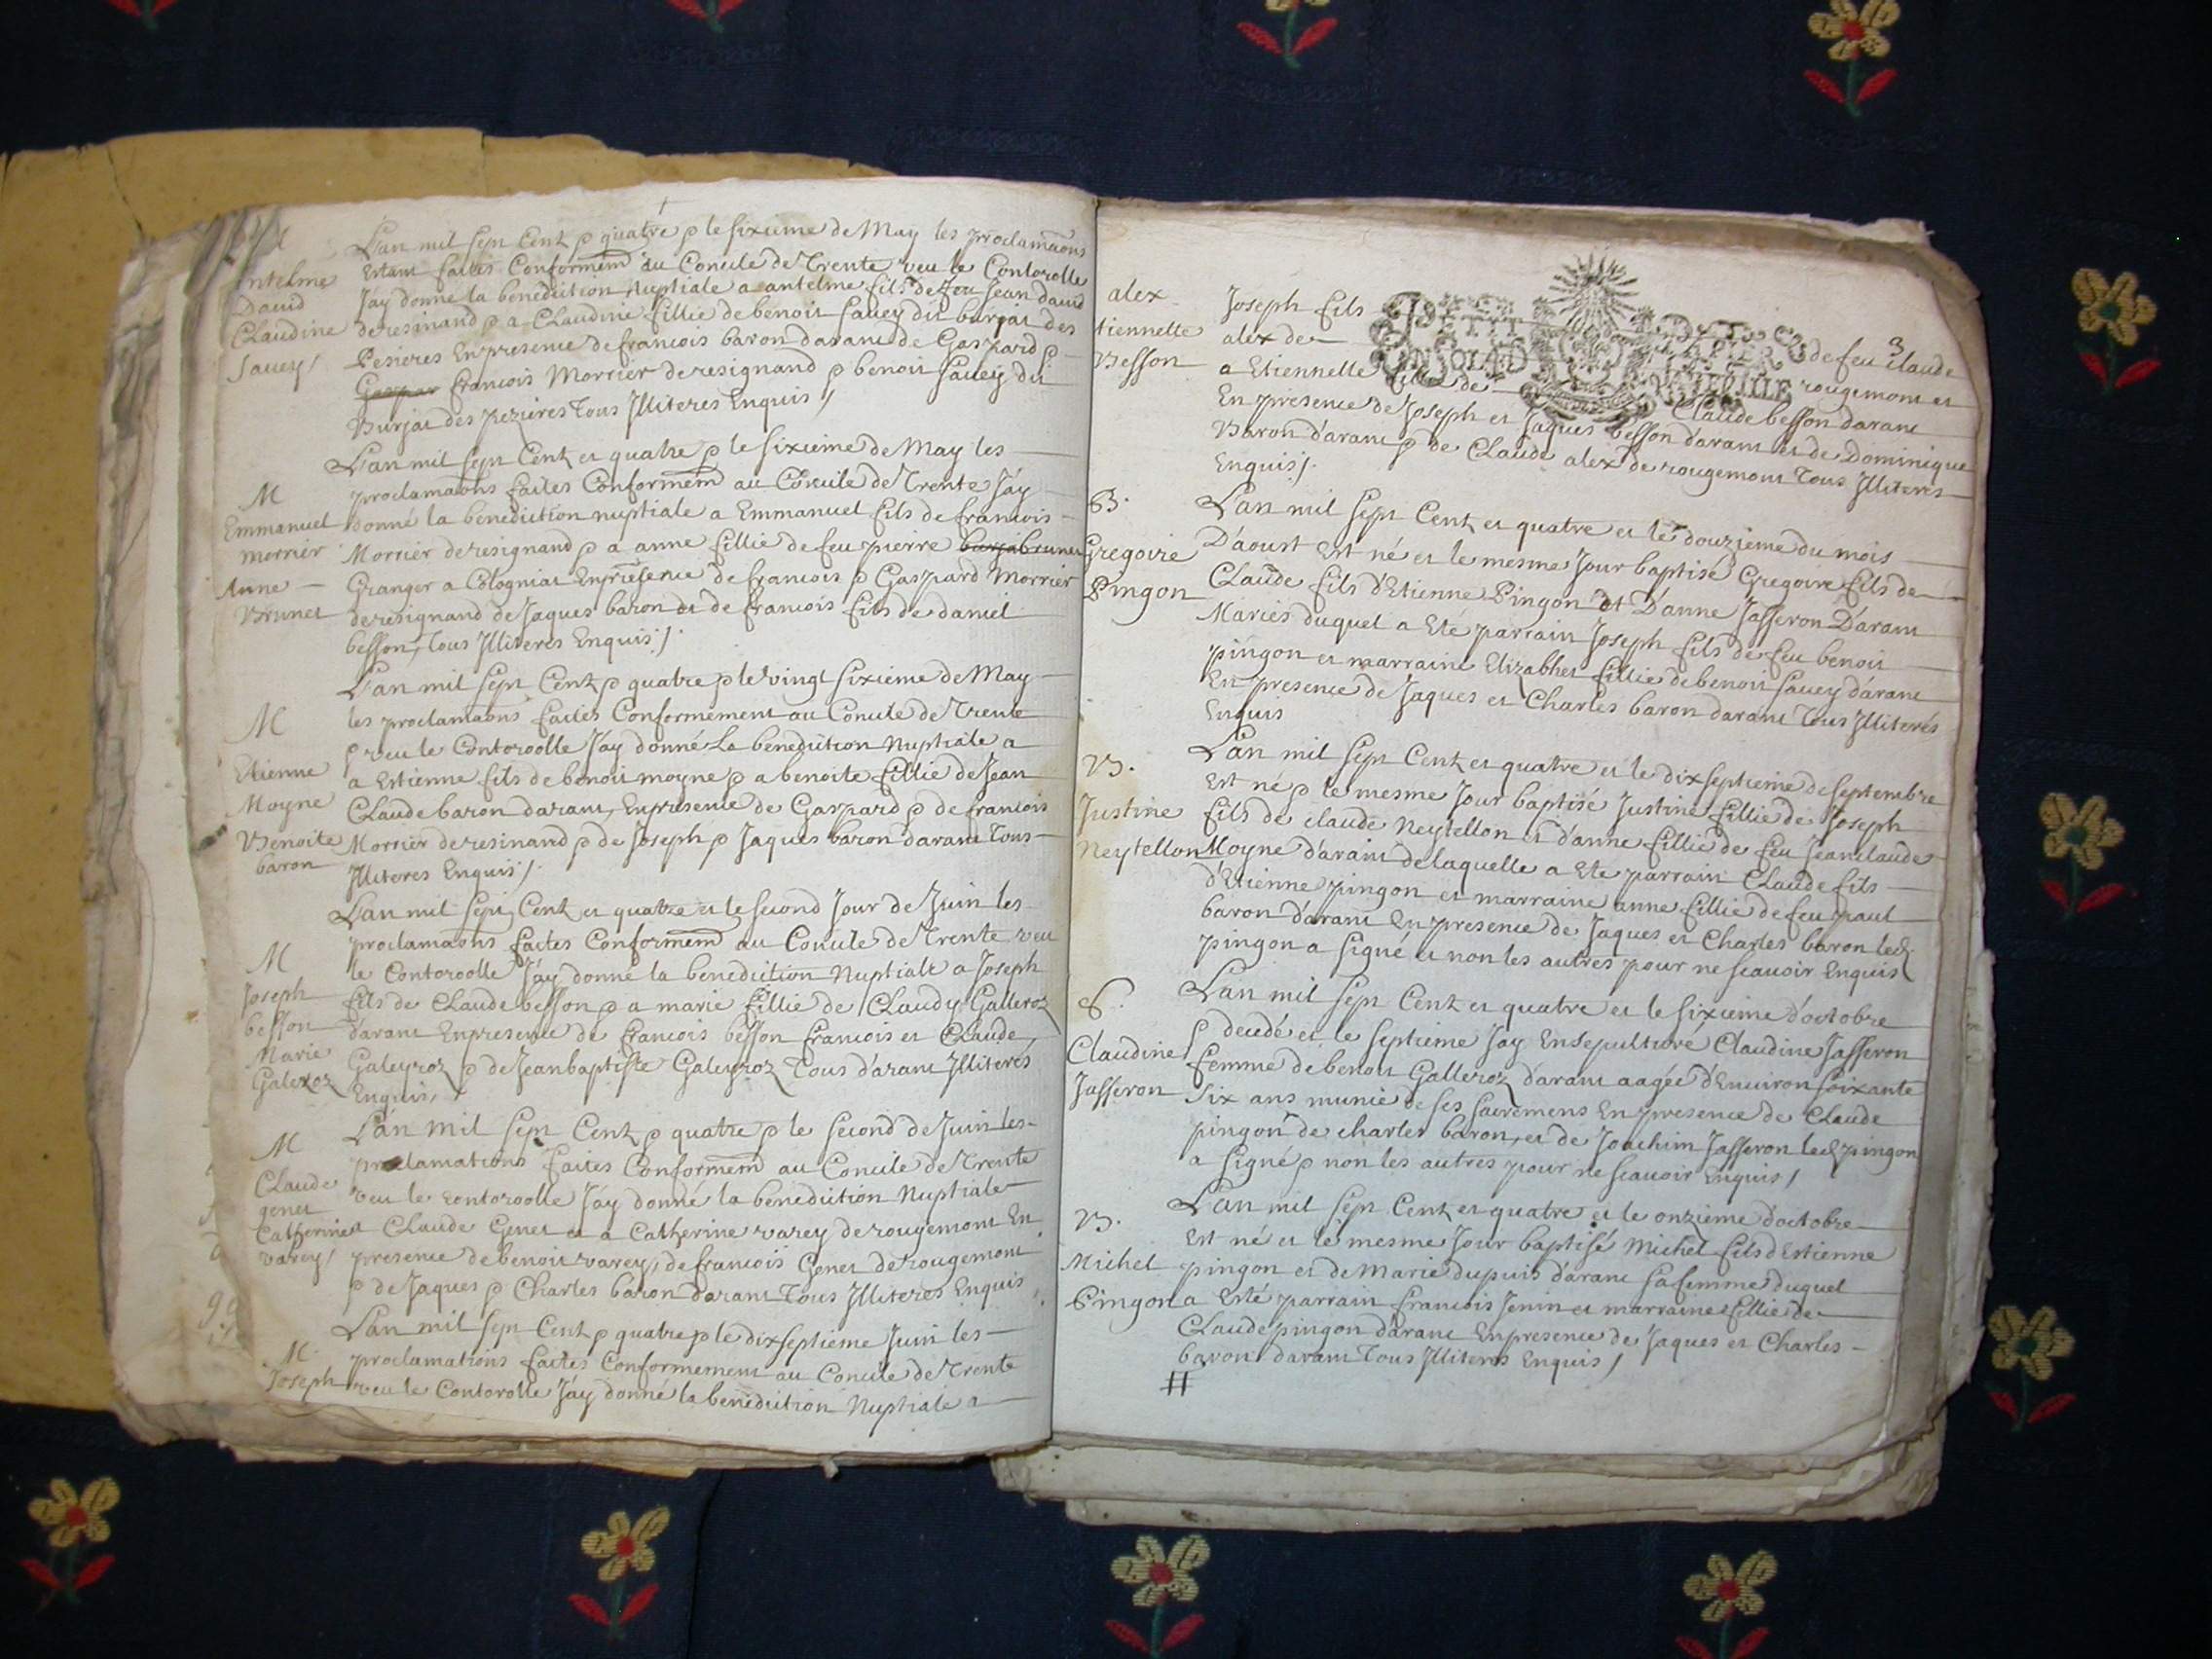 L'an mil sept Cent & quatre & le sixieme de May les proclamaons
Antelme
David
Claudine
Sauey/
Estant faites Conformem̃ au Concile de Trente veu le Contorolle
J'ay donné la benediction nuptiale a antelme fils de feu Jean david
de resinand & a Claudine fillie de benoit sauey dit burjat des
Pesieres En presence de francois baron darant de Gaspard &
Gaspar francois Morrier de resignand & benoit sauey dit
Burjat des pezieres Tous Illiteres Enquis /
L'an mil sept Cent et quatre & le sixieme de May les
M
Emmanuel
morrier
Anne
Brunet
proclamaons faites Conformem̃ au Concile de Trente J'ay
donné la benediction nuptiale a Emmanuel fils de francois
Morrier de resignand & a anne fillie de feu pierre brunet
Granger a Cologniat En presence de francois & Gaspard Morrier
de resignand de Jaques baron et de francois fils de daniel
besson, Tous Illiteres Enquis /.
L'an mil sept Cent & quatre & le vingt sixieme de May
M
Etienne
Moyne
Benoite
baron
les proclamaons faites Conformement au Concile de Trente
& veu le Contoroolle J'ay donné La benediction Nuptiale a
a Estienne fils de benoit moyne & a benoite fillie de Jean
Claude baron darant, En presence de Gaspard & de francois
Morrier de resinand & de Joseph & Jaques baron darant Tous
Illiteres Enquis /.
L'an mil sept Cent et quatre et le second Jour de Juin les
M
Joseph
besson
Marie
Galeroz
proclamaons faites Conformem̃ au Concile de Trente veu
le Contoroolle J'ay donné la benediction Nuptiale a Joseph
fils de Claude besson & a marie fillie de Claudy Galleroz
d'arant En presence de francois besson francois et Claude
Galeyroz & de Jean baptiste Galeyroz Tous d'arant Illiteres
Enquis,
L'an mil sept Cent & quatre & le second de Juin les
M
Claude
genet
Catherine
varey/
proclamations faites Conformem̃ au Concile de Trente
veu le contoroolle J'ay donné la benediction Nuptiale
a Claude Genet et a Catherine varey de rougemont En
presence de benoit varey, de francois Genet de rougemont
& de Jaques & Charles baron darant Tous Illiteres Enquis
L'an mil sept Cent & quatre & le dixseptieme Juin les
M.
Joseph
proclamations faites Conformement au Concile de Trente
veu le Contorolle J'ay donné la benediction Nuptiale a
3
alex
tiennette
Besson
Joseph fils de feu claude
alex de rougemont et
a Etiennette fillie de Claude besson darant
En presence de Joseph et Jaques besson d'arant et de Dominique
Baron d'arant & de Claude alex de rougemont Tous Illiteres
Enquis /.
B.
Gregoire
Pingon
L'an mil sept Cent et quatre et le douzieme du mois
D'aoust Est né et le mesme Jour baptisé Gregoire fils de
Claude fils d'Etienne Pingon et D'anne Jasseron D'arant
Mariés duquel a Eté parrain Joseph fils de feu benoit
pingon et marraine Elizabhet fillie de benoit sauey d'arant
En presence de Jaques et Charles baron darant Tous Illiterés
Enquis
B.
Justine
Neytellon
L'an mil sept Cent et quatre et le dixseptieme de septembre
Est né & le mesme Jour baptisé Justine fillie de Joseph
fils de claude Neytellon et d'anne fillie de feu Jeanclaude
Moyne d'arant de laquelle a Ete parrain Claude fils
d'Etienne pingon et marraine anne fillie de feu paul
baron d'arant En presence de Jaques et Charles baron led.
pingon a signé et non les autres pour ne scauoir Enquis
S.
Claudine
Jasseron
L'an mil sept Cent et quatre et le sixieme d'octobre
decedé et le septieme J'ay Ensepulturé Claudine Jasseron
femme de benoit Galleroz d'arant aagée d'Enuiron soixante
six ans munie de ses sacremens En presence de Claude
pingon de charles baron, et de Joachim Jasseron led pingon
a signé & non les autres pour ne scauoir Enquis /
B.
Michel
Pingon
L'an mil sept Cent et quatre et le onzieme d'octobre
Est né et le mesme Jour baptisé Michel fils d'Estienne
pingon et de Marie dupuis d'arant sa femme duquel
a Esté parrain francois Jenin et marraine fillie de
Claude pingon d'arant En presence de Jaques et Charles
baron darant Tous Illiteres Enquis /